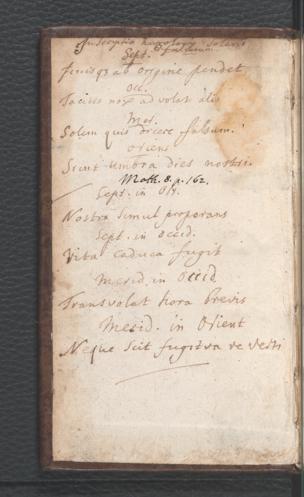 Inscriptio horologii solaris
Sept.
finisque ab origine pendet
Occ.
Tacitis nox advolat alis
Mer.
Solem quis dicere falsum.
oriens
Sicut umbra dies nostri.
Matt. 8. p. 162.
Sept. in Or.
Nostra simul properans
Sept. in occid.
Vita caduca fugit
Merid. in Occid
Transvolat hora brevis
Merid. in Orient
Neque scit fugitiva reverti